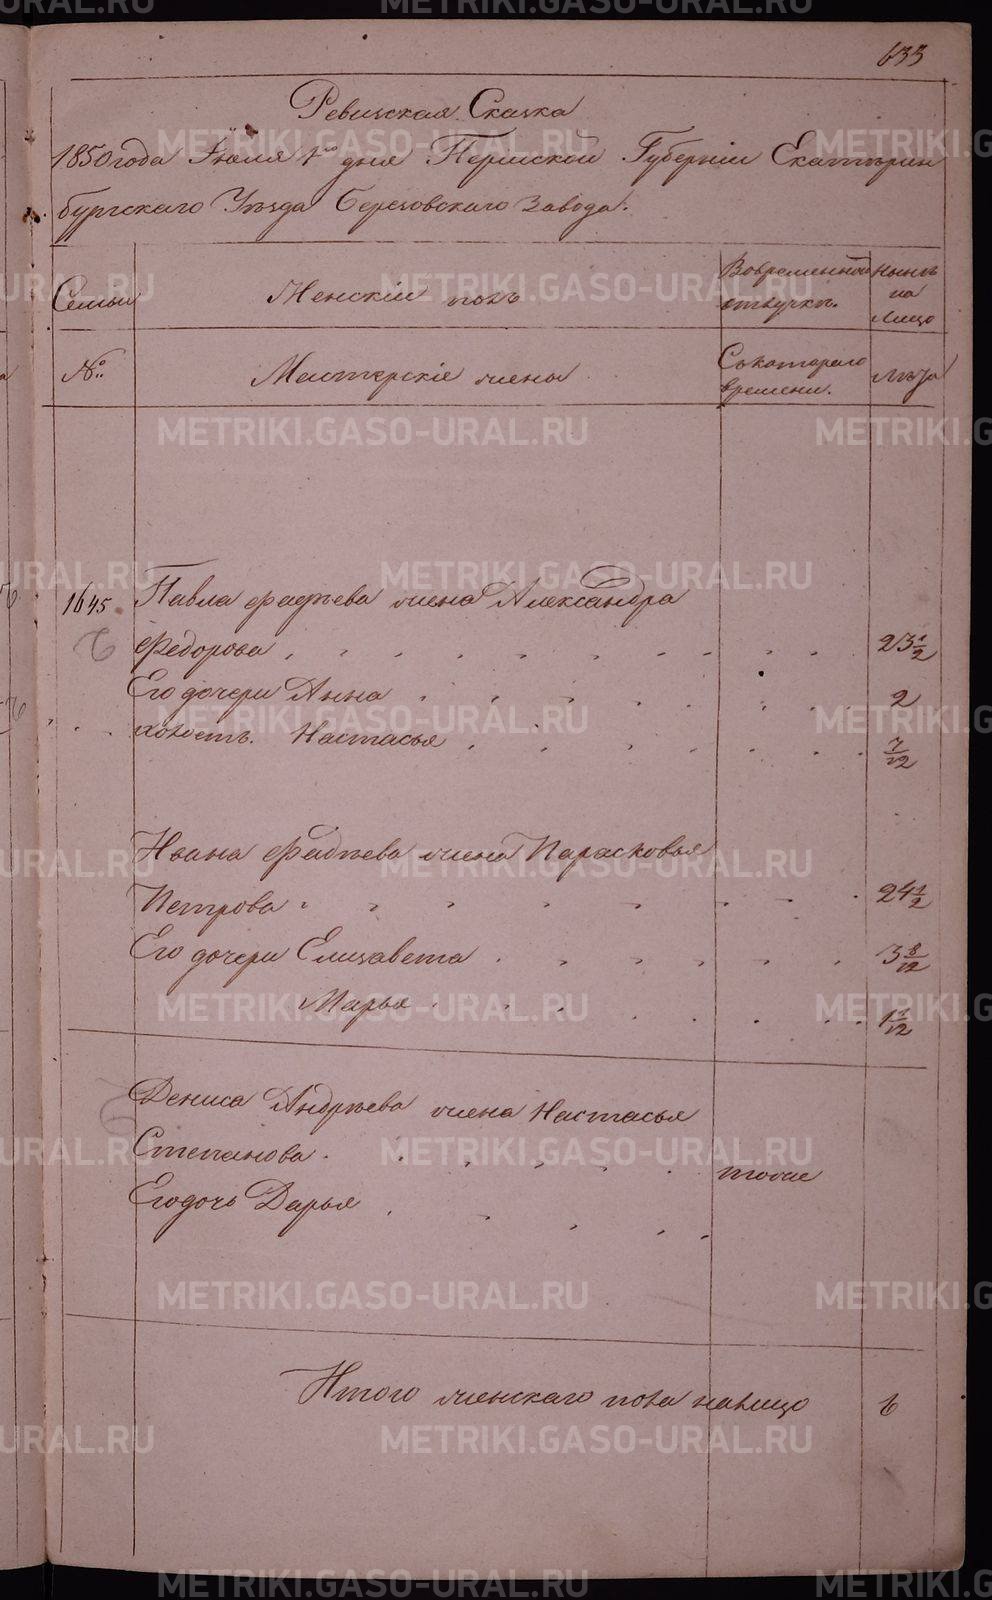 633
Ревизская Сказка
1850 года Іюля 1го дня Пермской Губерніи Екатерин
бургскаго Уѣзда Березовскаго Завода.
Семьи
Женскій полъ
Во временной отлучкѣ.
Нынѣ на лицо
№
Мастерскіе жены
Съ котораго времени.
лѣта
1645
Павла Фадѣева жена Александра
Федорова 23 1/2
Его дочери Анна 2
Настасья 7/12
Ивана Фадѣева жена Парасковья
Петрова 24 1/2
Его дочери Елизавета 3 8/12
Марья 1 1/12
Дениса Андрѣева жена Настасья
Степанова
Его дочь Дарья
Итого женскаго пола налицо 6
METRIKI.GASO-URAL.RU